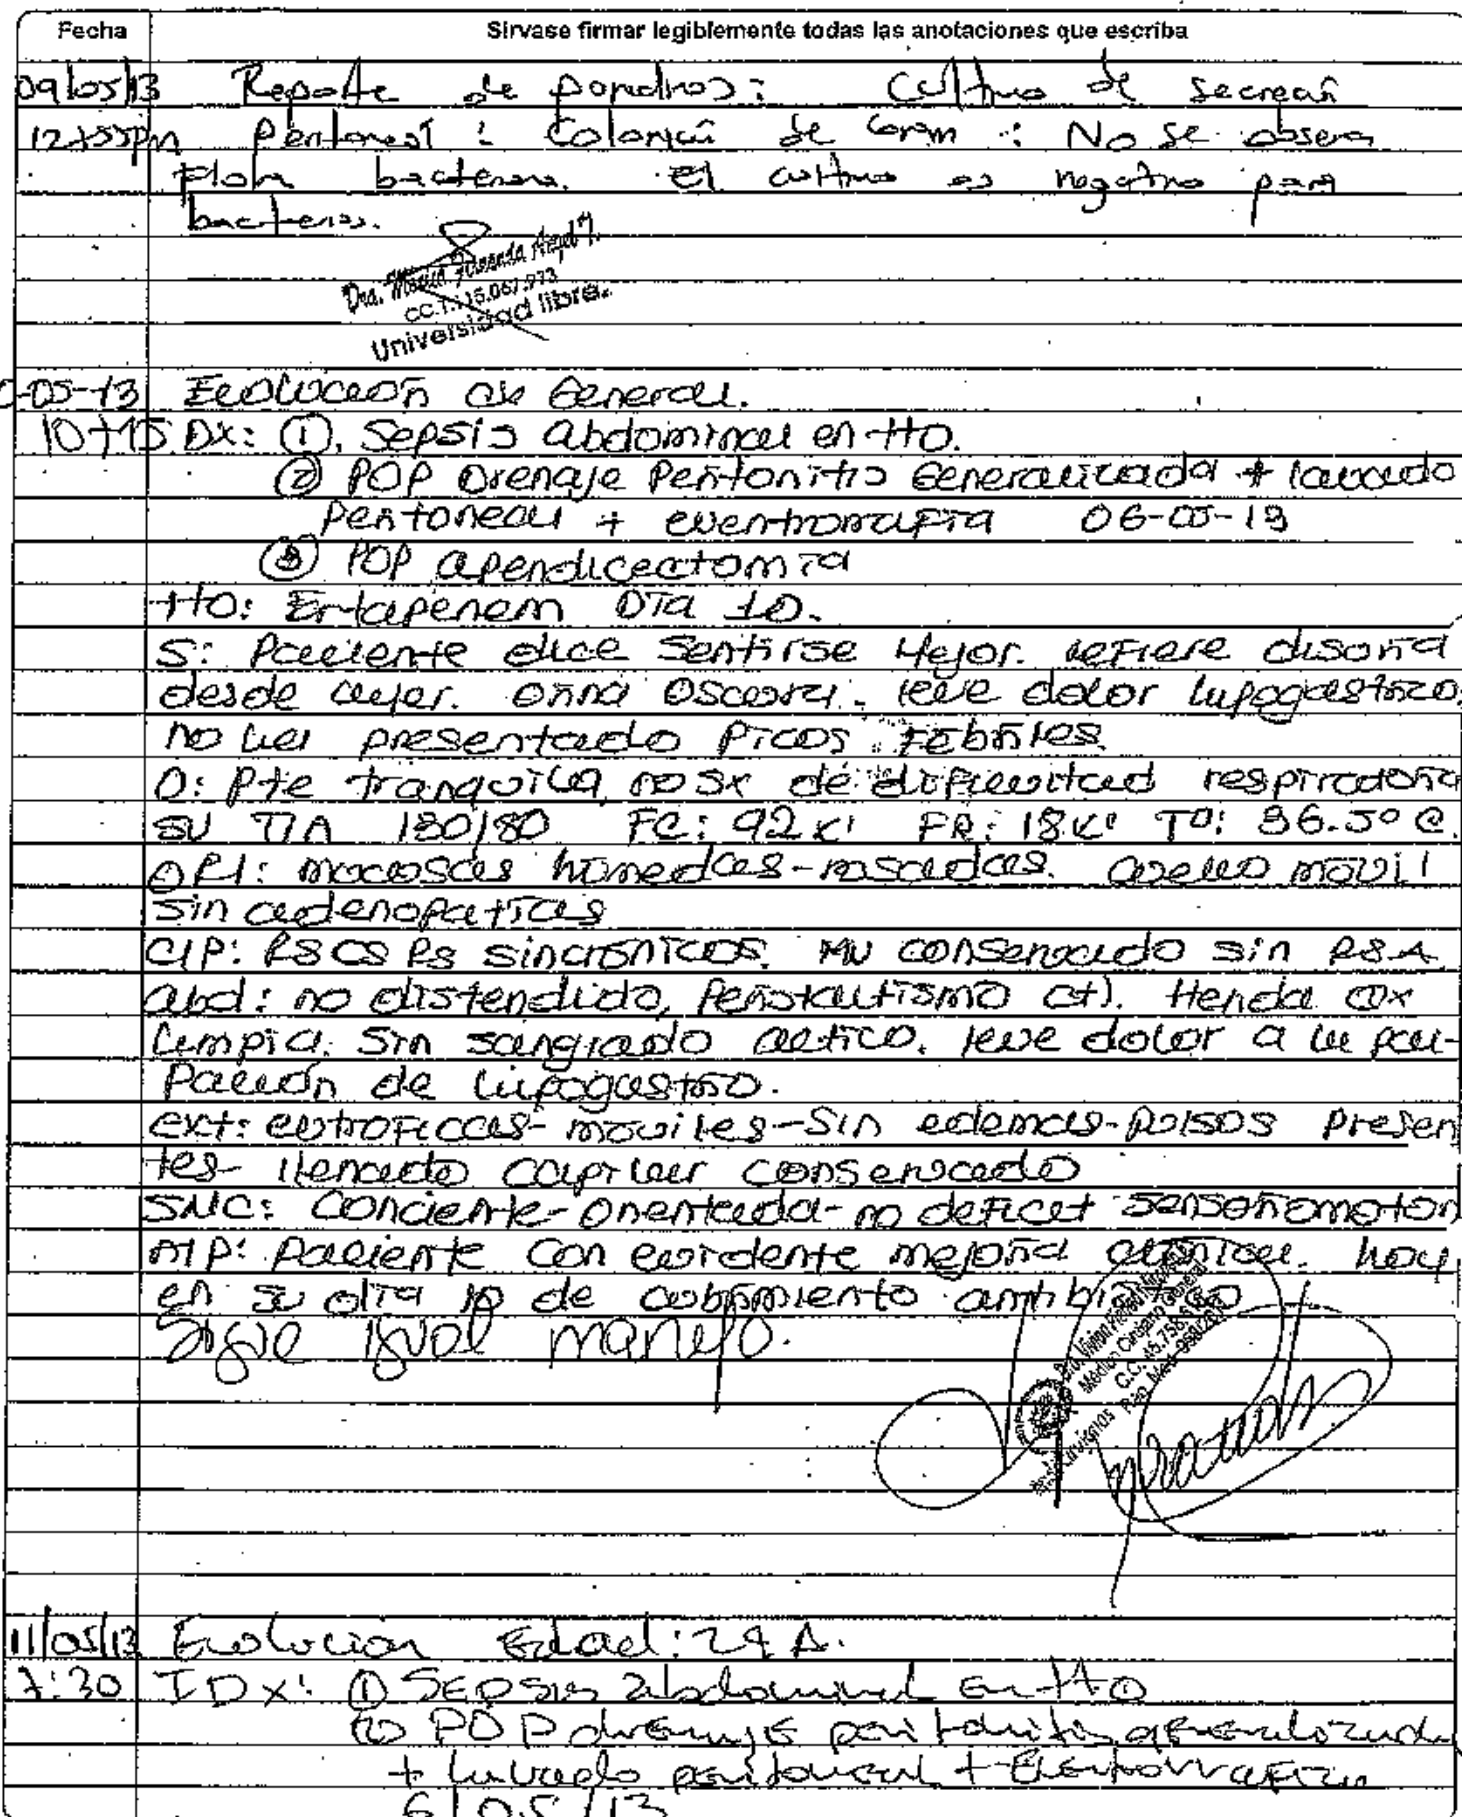 Fecha Sirvase firmar legiblemente todas las anotaciones que escriba
09/05/13 Reporte de : Cultivo de secrecion
12+55pm Peritoneal : Coloración de Gram : No se observa
Flora bacteriana. El cultivo es negativo para
bacterias.
Dra. Maria
CC.1.115.067.973
Universidad libre.
0-05-13 Evolución de General.
10+15 DX: ①. Sepsis abdominal en tto.
② POP Drenaje Peritonitis Generalizada + lavado
Peritoneal + eventrorrafia 06-05-13
③ POP apendicectomia
tto: Ertapenem Dia 10.
S: Paciente dice sentirse Mejor. refiere disuria
desde ayer. orina oscura. leve dolor hipogastrico.
no ha presentado Picos Febriles
O: Pte tranquila, no sx de dificultad respiratoria
SV T/A 130/80 FC: 92x' FR: 18x' Tº: 36.5º C.
mucosas humedas-rosadas. cuello movil
sin adenopatias
C/P: RsCsRs sincronicos. MV conservado sin RSA
abd: no distendido, Peristaltismo (+). Herida Qx
limpia. Sin sangrado activo. leve dolor a la pal-
Pación de hipogastrio.
ext: eutroficas-moviles-Sin edemas-pulsos presen
tes- llenado capilar conservado
SNC: Conciente-orientada-no deficit sensoriomotor
A/P: Paciente con evidente mejoria clinica. hoy
en su dia 10 de cubrimiento antibiotico
Sigue igual manejo.
Médico Cirujano General
11/05/13 Evolucion Edad: 29 A.
7:30 IDx: ① Sepsis abdominal en tto
② POP drenaje peritonitis generalizada
+ lavado peritoneal + Eventrorrafia
6/05/13